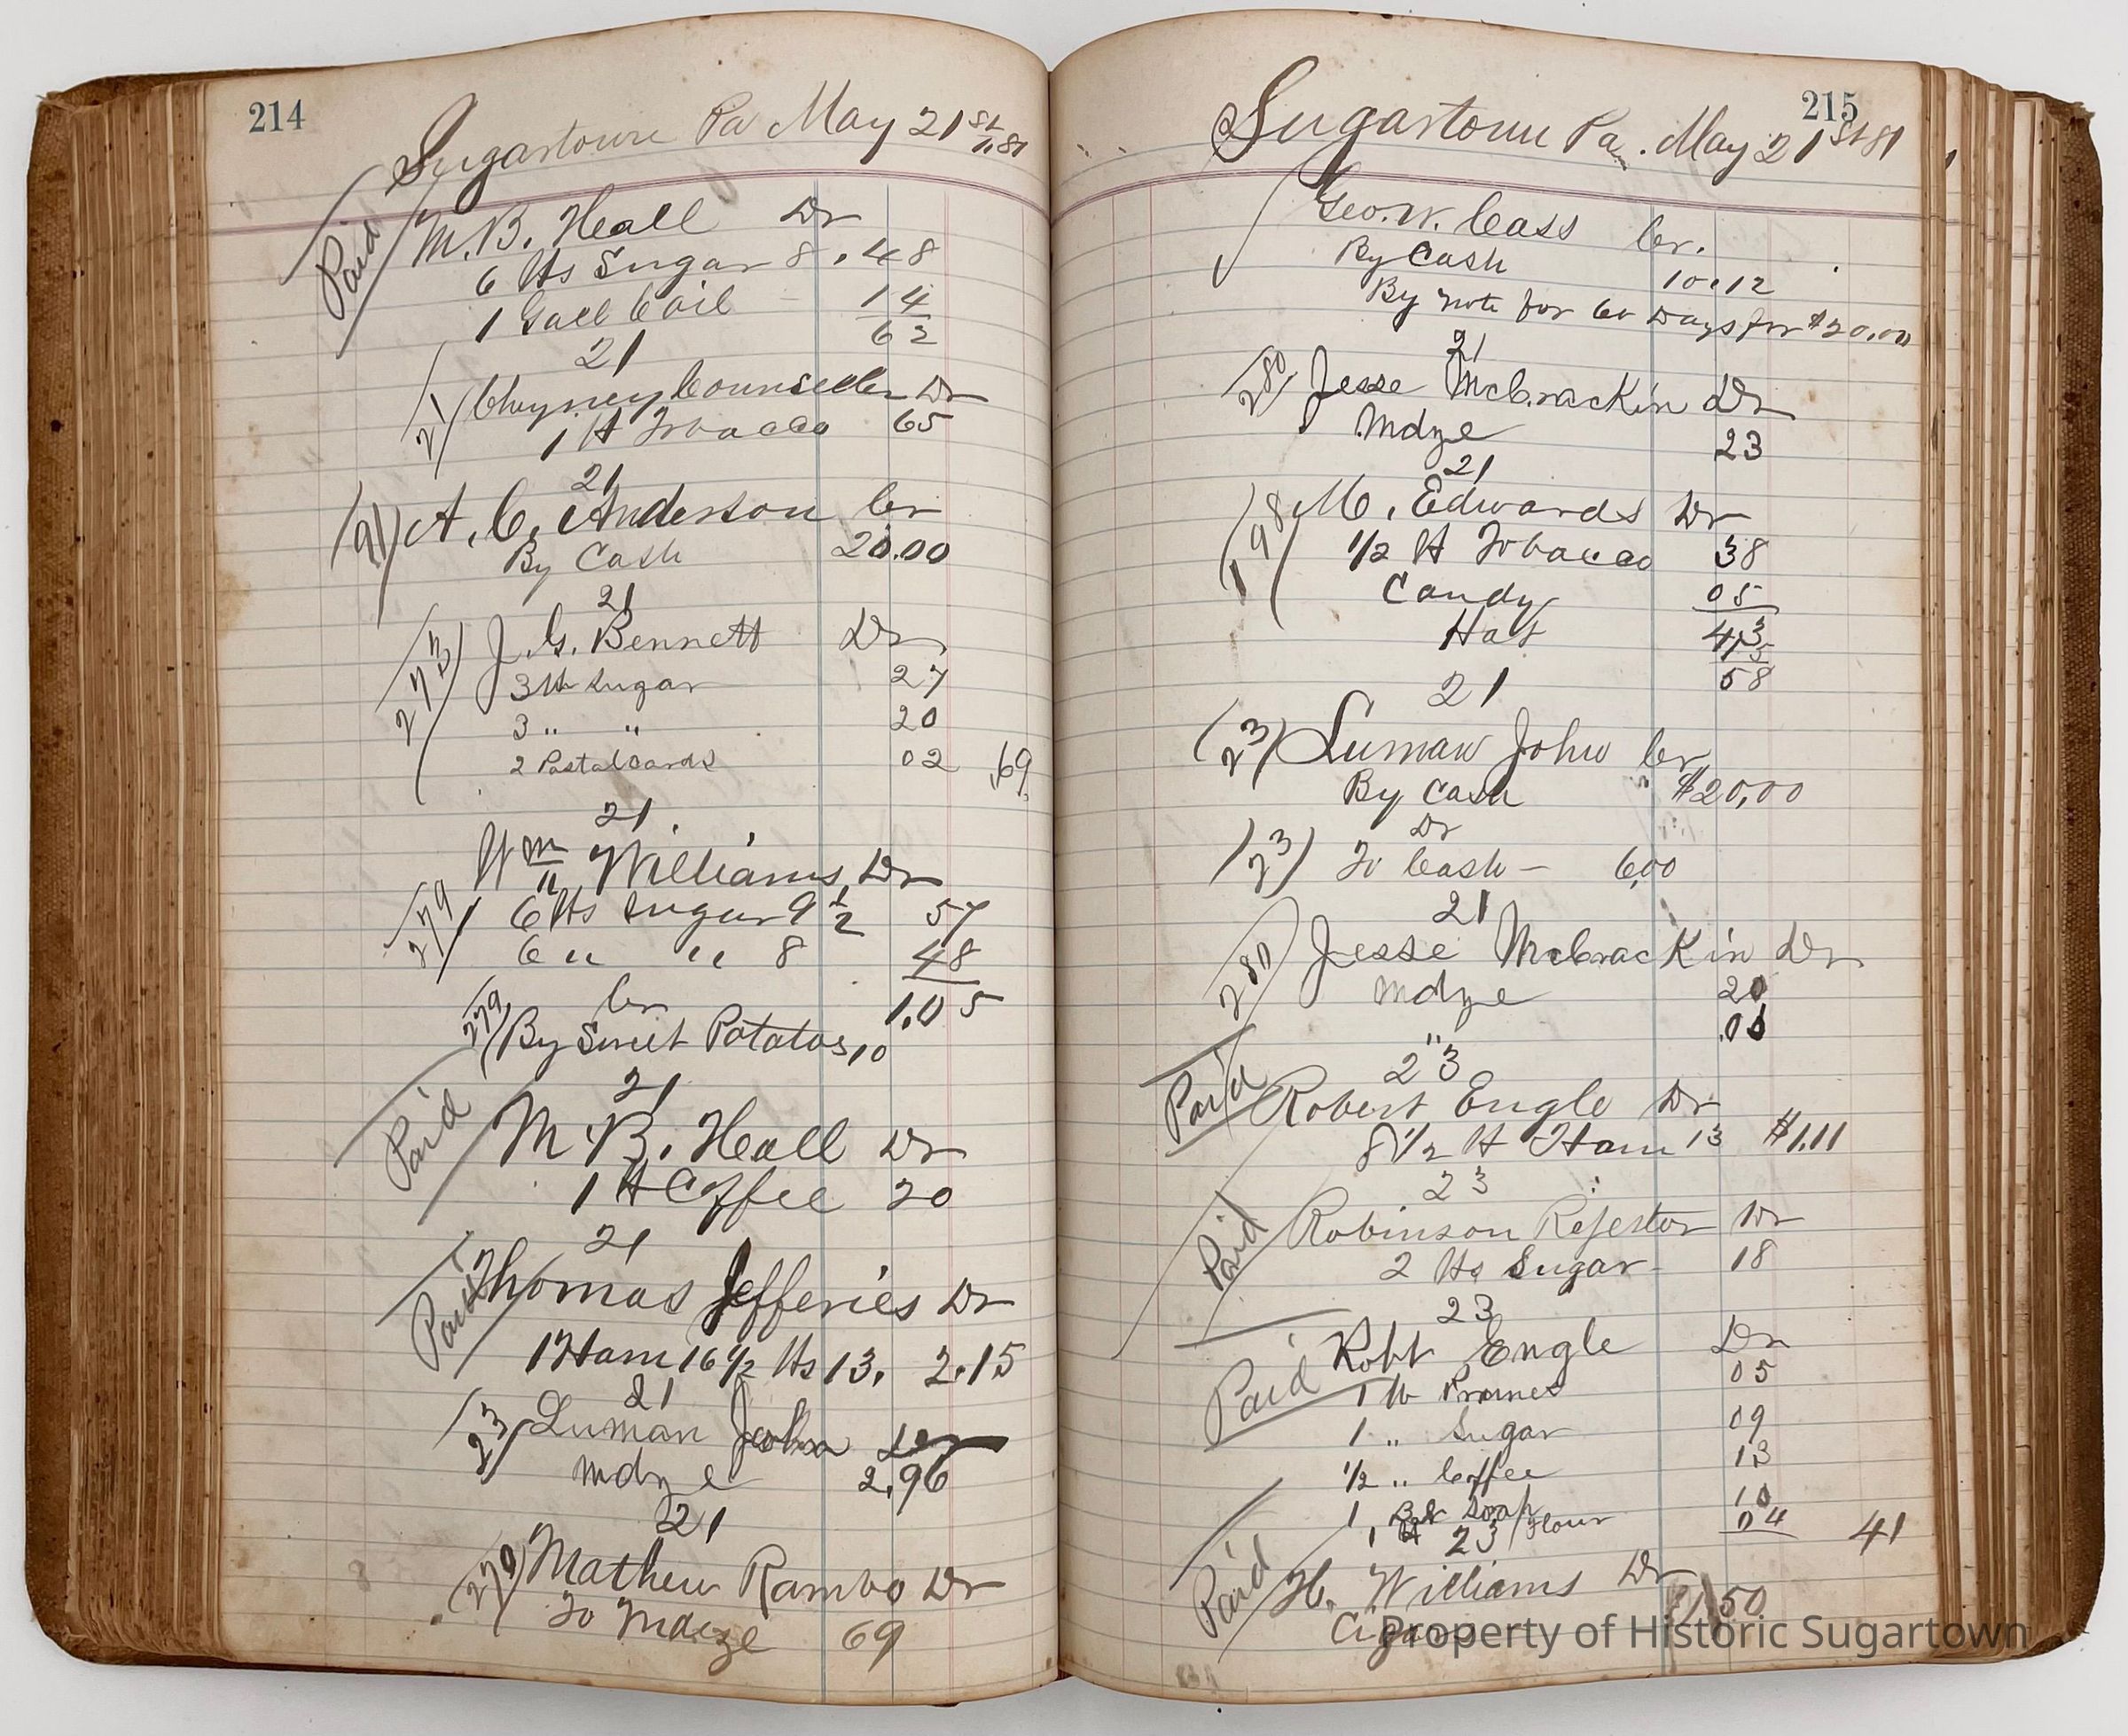 214
Sugartown Pa May 21st 1,81
Paid
M. B. Heall Dr
6 lts Sugar 8 . 48
1 Gall C oil 14
62
21
21 Cheyney Counseller Dr
1 lt Tobacco 65
21
91 A. C. Anderson Cr
By Cash 20.00
21
273 J. G. Bennett Dr
3 lt Sugar 27
3 " " 20
2 Postal cards 02 .69
21
Wm Williams Dr
279 6 lts Sugar 9 1/2 57
6 " " 8 48
Cr 1.05
279 By Sweet Potatos 10
21
Paid M. B. Heall Dr
1 lt Coffee 20
21
Paid Thomas Jefferies Dr
1 Ham 16 1/2 lts 13. 2.15
21
23 Luman John Dr
Mdze 2.96
21
279 Mathew Rambo Dr
To Mdze 69
215
Sugartown Pa. May 21st 81
Geo. W. Cass Cr.
By Cash 10.12
By note for 60 Days for $20.00
21
280 Jesse McCrackin Dr
Mdze 23
21
198 M. Edwards Dr
1/2 lt Tobacco 38
Candy 05
Hat 43
58
21
(23) Luman John Cr
By Cash $20,00
Dr
(23) To Cash — 6,00
21
280 Jesse McCrackin Dr
Mdze 20
23
Paid Robert Engle Dr
8 1/2 lt Ham 13 $1.11
23
Paid Robinson Dr
2 lts Sugar 18
23
Paid Robt Engle Dr
1 lt Prunes 05
1 " Sugar 09
1/2 " Coffee 13
1 Bar Soap 10
1 lt Flour 04 41
23
Paid H. Williams Dr
Cigars 50
Property of Historic Sugartown